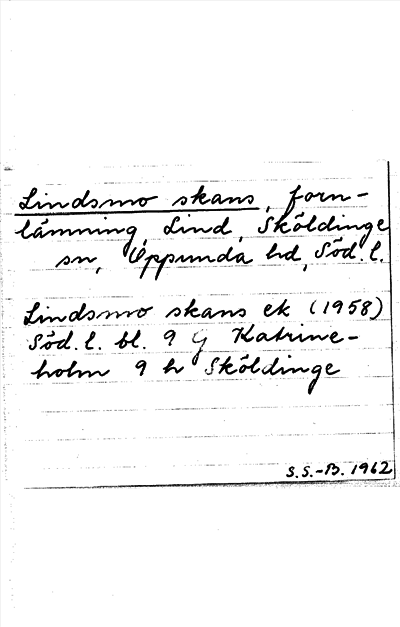 Lindsmo skans, forn-
lämning, Lind, Sköldinge
sn, Oppunda hd, Söd. l.
Lindsmo skans ek (1958)
Söd. l. bl. 9 G Katrine-
holm 9 h Sköldinge
S.S.-B. 1962